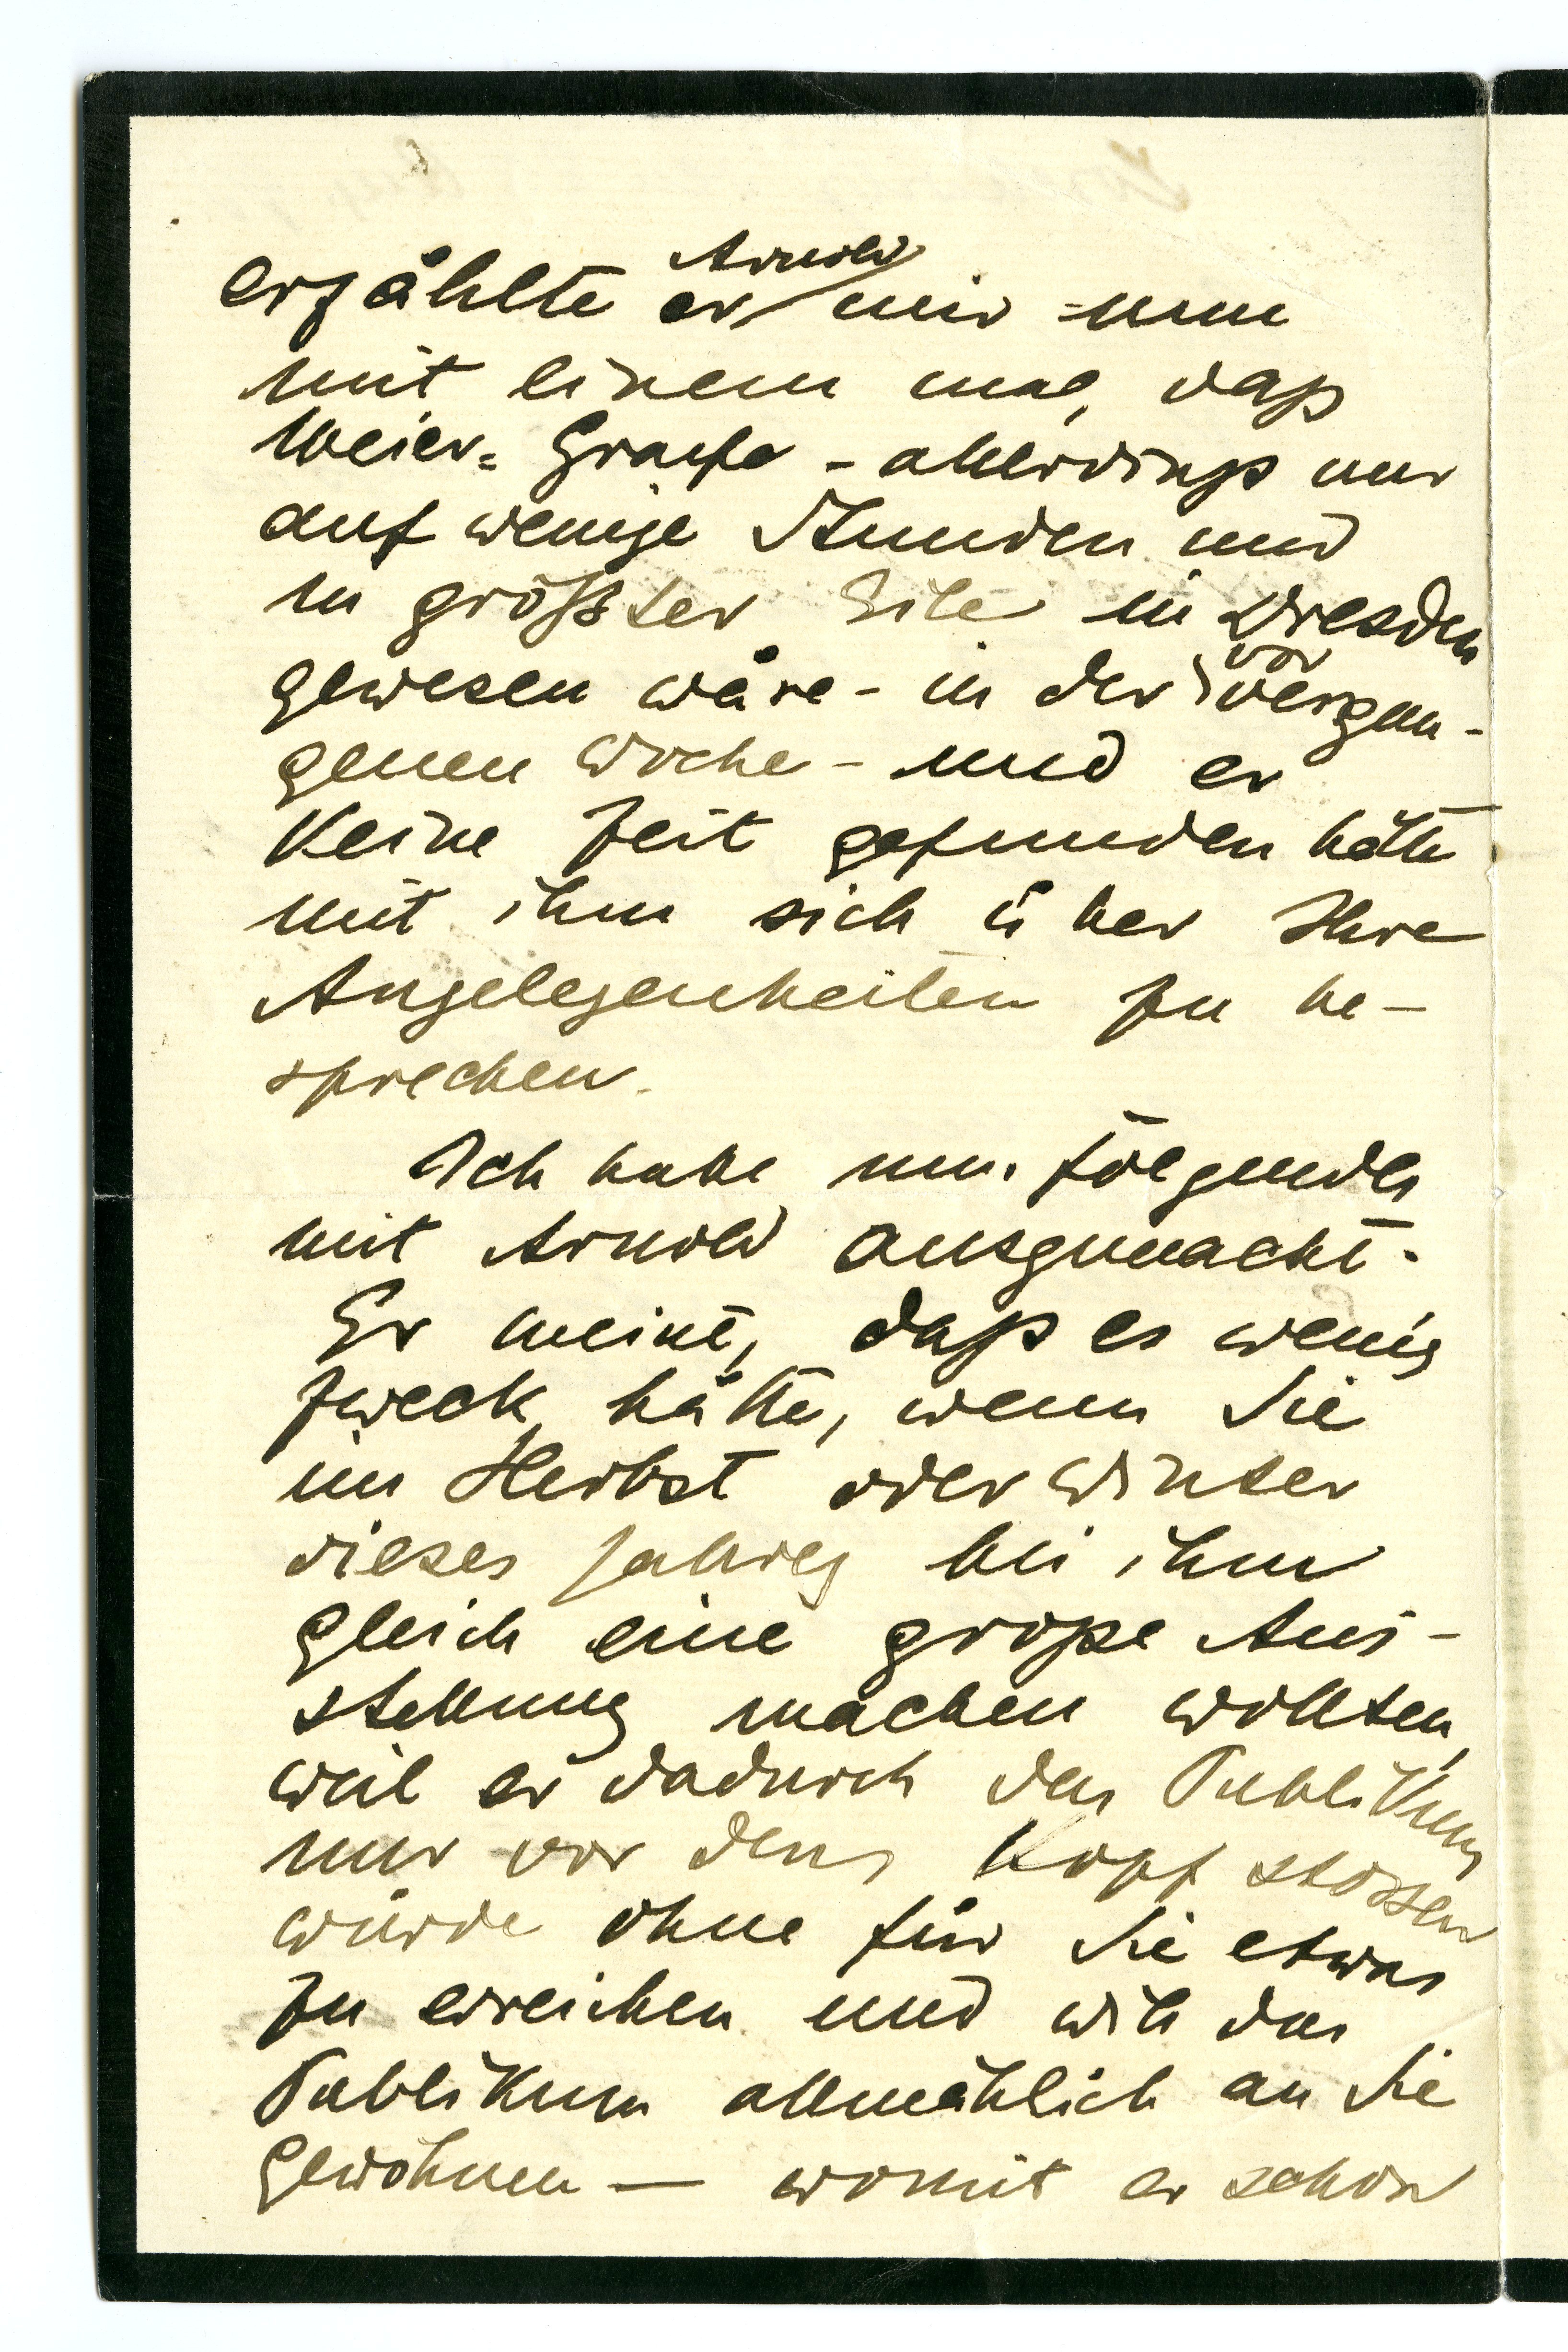 Arnold
erzählte er mir nun
mit einem mal, daß
Meier-Graefe - allerdings nur
auf wenige Stunden und
in größter Eile in Dresden
vor
gewesen wäre - in der vergan-
genen Woche - und er
keine Zeit gefunden hätte
mit ihm sich über Ihre
Angelegenheiten zu be-
sprechen.
Ich habe nun folgendes
mit Arnold ausgemacht.
Er meint, daß es wenig
Zweck hätte, wenn Sie
im Herbst oder Winter
dieses Jahres bei ihm
gleich eine große Aus-
stellung machen wollten,
weil er dadurch das Publikum
nur vor den Kopf stossen
würde ohne für Sie etwas
zu erreichen und will das
Publikum allmählich an Sie
gewöhnen — womit er schon